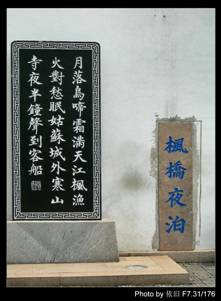 楓橋夜泊
月落烏啼霜滿天江楓漁
火對愁眠姑蘇城外寒山
寺夜半鐘聲到客船
Photo by 依旧 F7.31/176